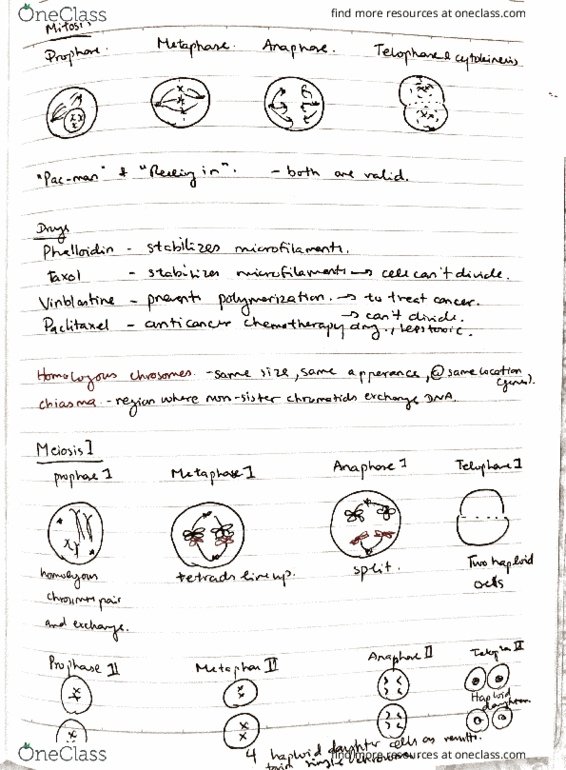 OneClass
find more resources at oneclass.com
Mitosis
Prophase. Metaphase. Anaphase. Telophase & cytokinesis
"Pac-man" & "Reeling in". - both are valid.
Drugs
Phalloidin - stabilizes microfilaments.
Taxol - stabilizes microfilaments → cell can't divide.
Vinblastine - prevents polymerization. → to treat cancer.
→ can't divide.
Paclitaxel - anticancer chemotherapy drug.,
Homologous chrosomes. - same size, same apperance, @ same location
(genes).
chiasma - region where non-sister chromatids exchange DNA.
Meiosis I
prophase I Metaphase I Anaphase I Telophase I
homologous chromosomes pair and exchange.
tetrads line up.
split.
Two haploid cells
Prophase II Metaphase II Anaphase II Telophase II
Haploid daughters
4 haploid daughter cells as results.
OneClass
find more resources at oneclass.com